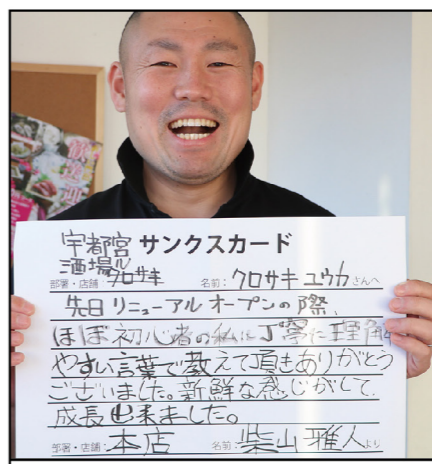 宇都宮 サンクスカード
酒場ル
部署・店舗 クロサキ 名前: クロサキ ユウカ さんへ
先日 リニューアル オープンの際、
ほぼ初心者の私に丁寧に理解し
やすい言葉で教えて頂きありがとう
ございました。新鮮な感じがして、
成長出来ました。
部署・店舗: 本店 名前: 柴山 雅人 より